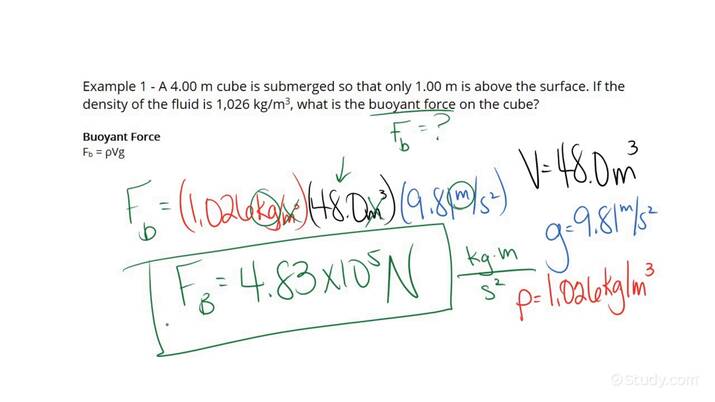 Example 1 - A 4.00 m cube is submerged so that only 1.00 m is above the surface. If the
density of the fluid is 1,026 kg/m³, what is the buoyant force on the cube?
F_b = ?
Buoyant Force
F_b = ρVg
V=48.0m³
F_b = (1,026kg/m³)(48.0m³)(9.81m/s²)
g=9.81m/s²
F_B = 4.83×10⁵ N
kg·m/s²
ρ=1,026kg/m³
Study.com